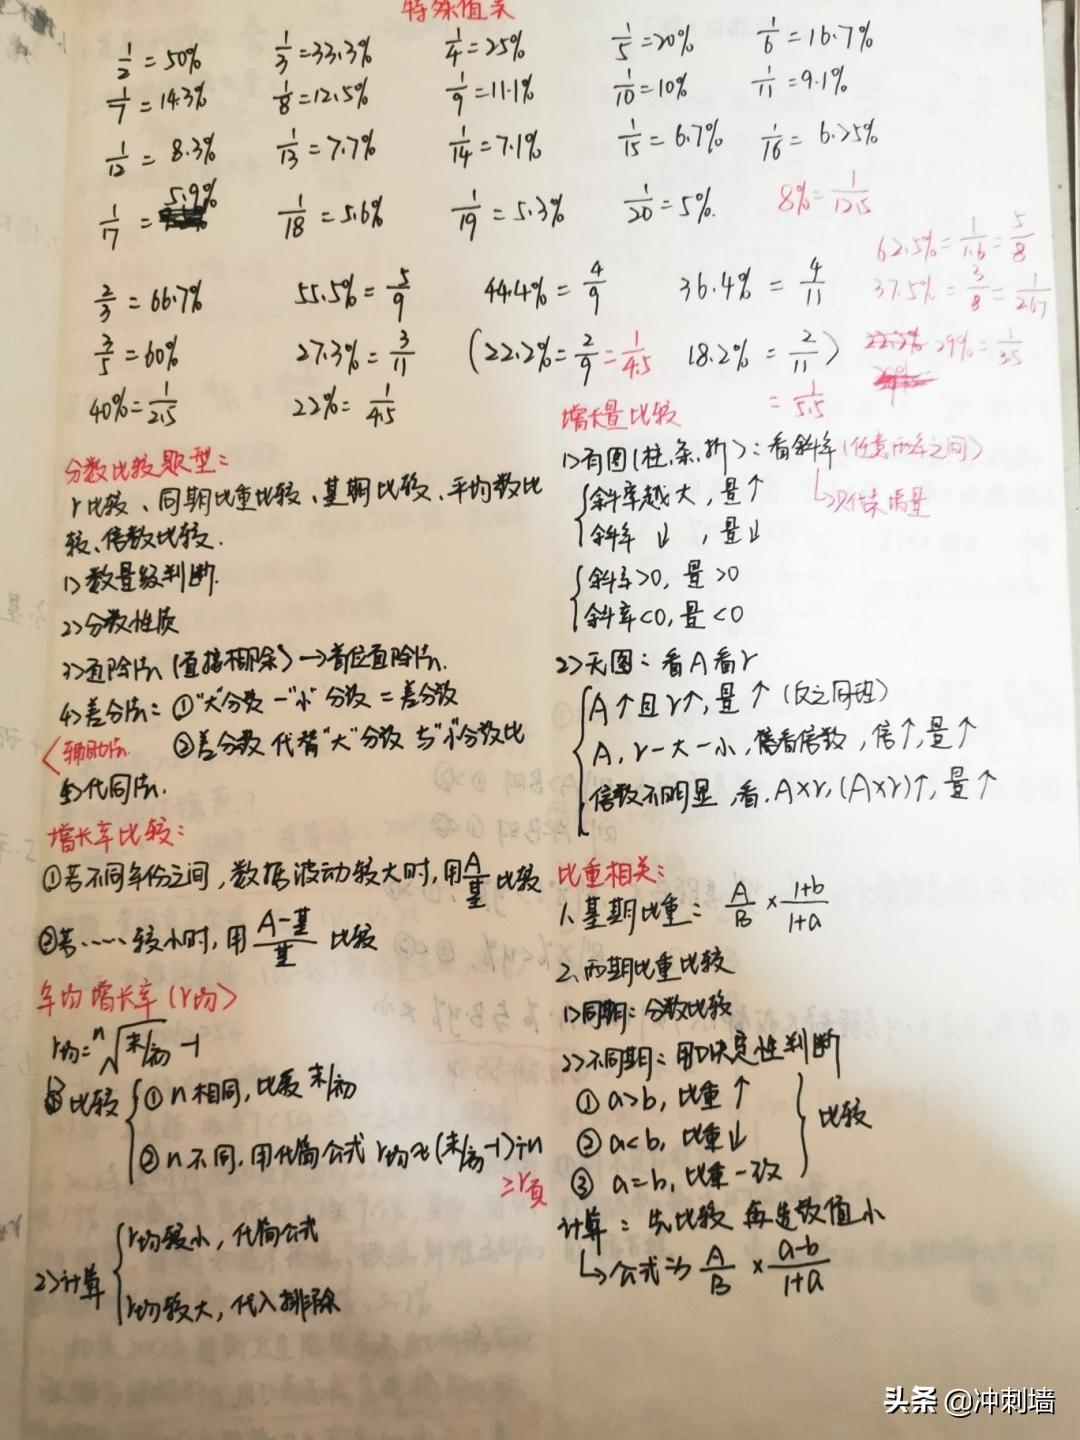 特殊值类
1/2 = 50% 1/3 = 33.3% 1/4 = 25% 1/5 = 20% 1/6 = 16.7%
1/7 = 14.3% 1/8 = 12.5% 1/9 = 11.1% 1/10 = 10% 1/11 = 9.1%
1/12 = 8.3% 1/13 = 7.7% 1/14 = 7.1% 1/15 = 6.7% 1/16 = 6.25%
1/17 = 5.9% 1/18 = 5.6% 1/19 = 5.3% 1/20 = 5%. 8% = 1/12.5
62.5% = 1/1.6 = 5/8
2/3 = 66.7% 55.5% = 5/9 44.4% = 4/9 36.4% = 4/11 37.5% = 3/8 = 1/2.67
3/5 = 60% 27.3% = 3/11 (22.2% = 2/9 = 1/4.5 18.2% = 2/11) = 1/5.5 29% = 1/3.5
40% = 1/2.5 22% = 1/4.5
分数比较题型:
r比较、同期比重比较、基期比较、平均数比
较、倍数比较.
1>数量级判断.
2>分数性质
3>直除法 (直接相除)→首位直除法.
4>差分法: ①"大"分数 - "小"分数 = 差分数
②差分数代替"大"分数与"小"分数比
辅助法
5>化同法.
增长率比较:
①若不同年份之间,数据波动较大时,用A/基比较
②若……较小时,用 (A-基)/基 比较
年均增长率(r均)
r均=ⁿ√末/初 -1
比较 ①n相同,比较末/初
②n不同,用化简公式 r均≈(末/初-1)÷n
≥r真
2>计算 r均较小,化简公式
r均较大,代入排除
增长量比较
1>有图(柱、条、折):看斜率(任意两年之间)
斜率越大,量↑
斜率↓,量↓
斜率>0,量>0
斜率<0,量<0
2>无图:看A看r
A↑且r↑,量↑(反之同理)
A,r一大一小,看倍数,倍↑,量↑
倍数不明显,看A×r,(A×r)↑,量↑
比重相关:
1、基期比重: A/B × (1+b)/(1+a)
2、两期比重比较
1>同期:分数比较
2>不同期:用决定性判断
①a>b,比重↑
②a<b,比重↓
③a=b,比重一致
比较
计算:先比较再选数值小
↳公式为 A/B × (a-b)/(1+a)
头条 @冲刺墙